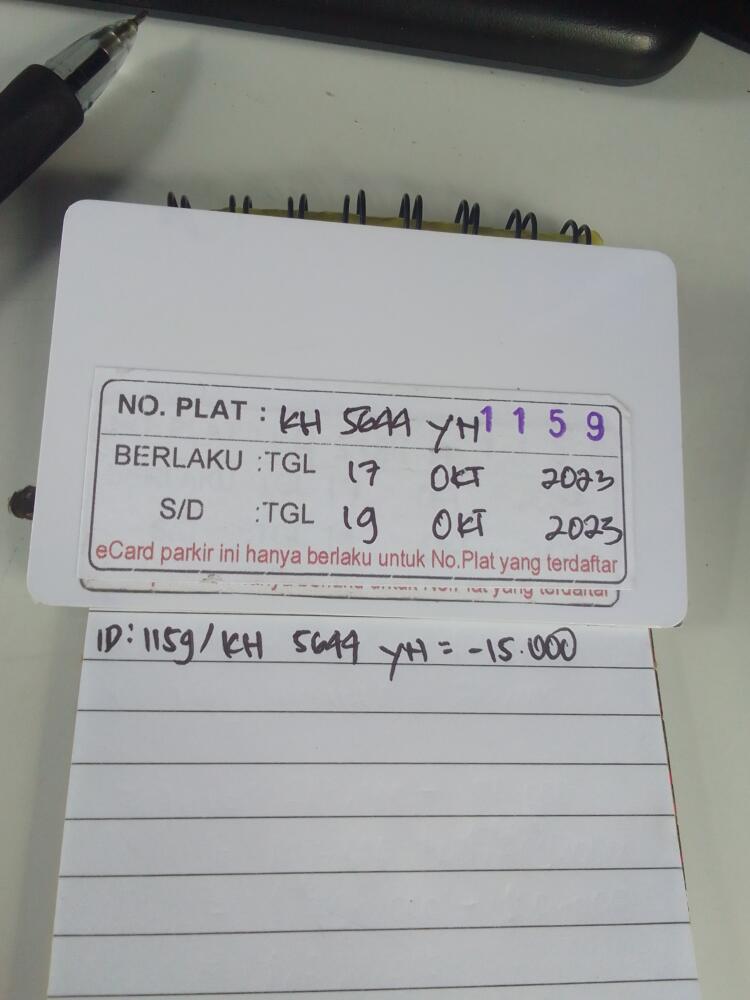 NO. PLAT : KH 5644 YH 1159
BERLAKU :TGL 17 OKT 2023
S/D :TGL 19 OKT 2023
eCard parkir ini hanya berlaku untuk No.Plat yang terdaftar
ID: 1159/KH 5644 YH = -15.000